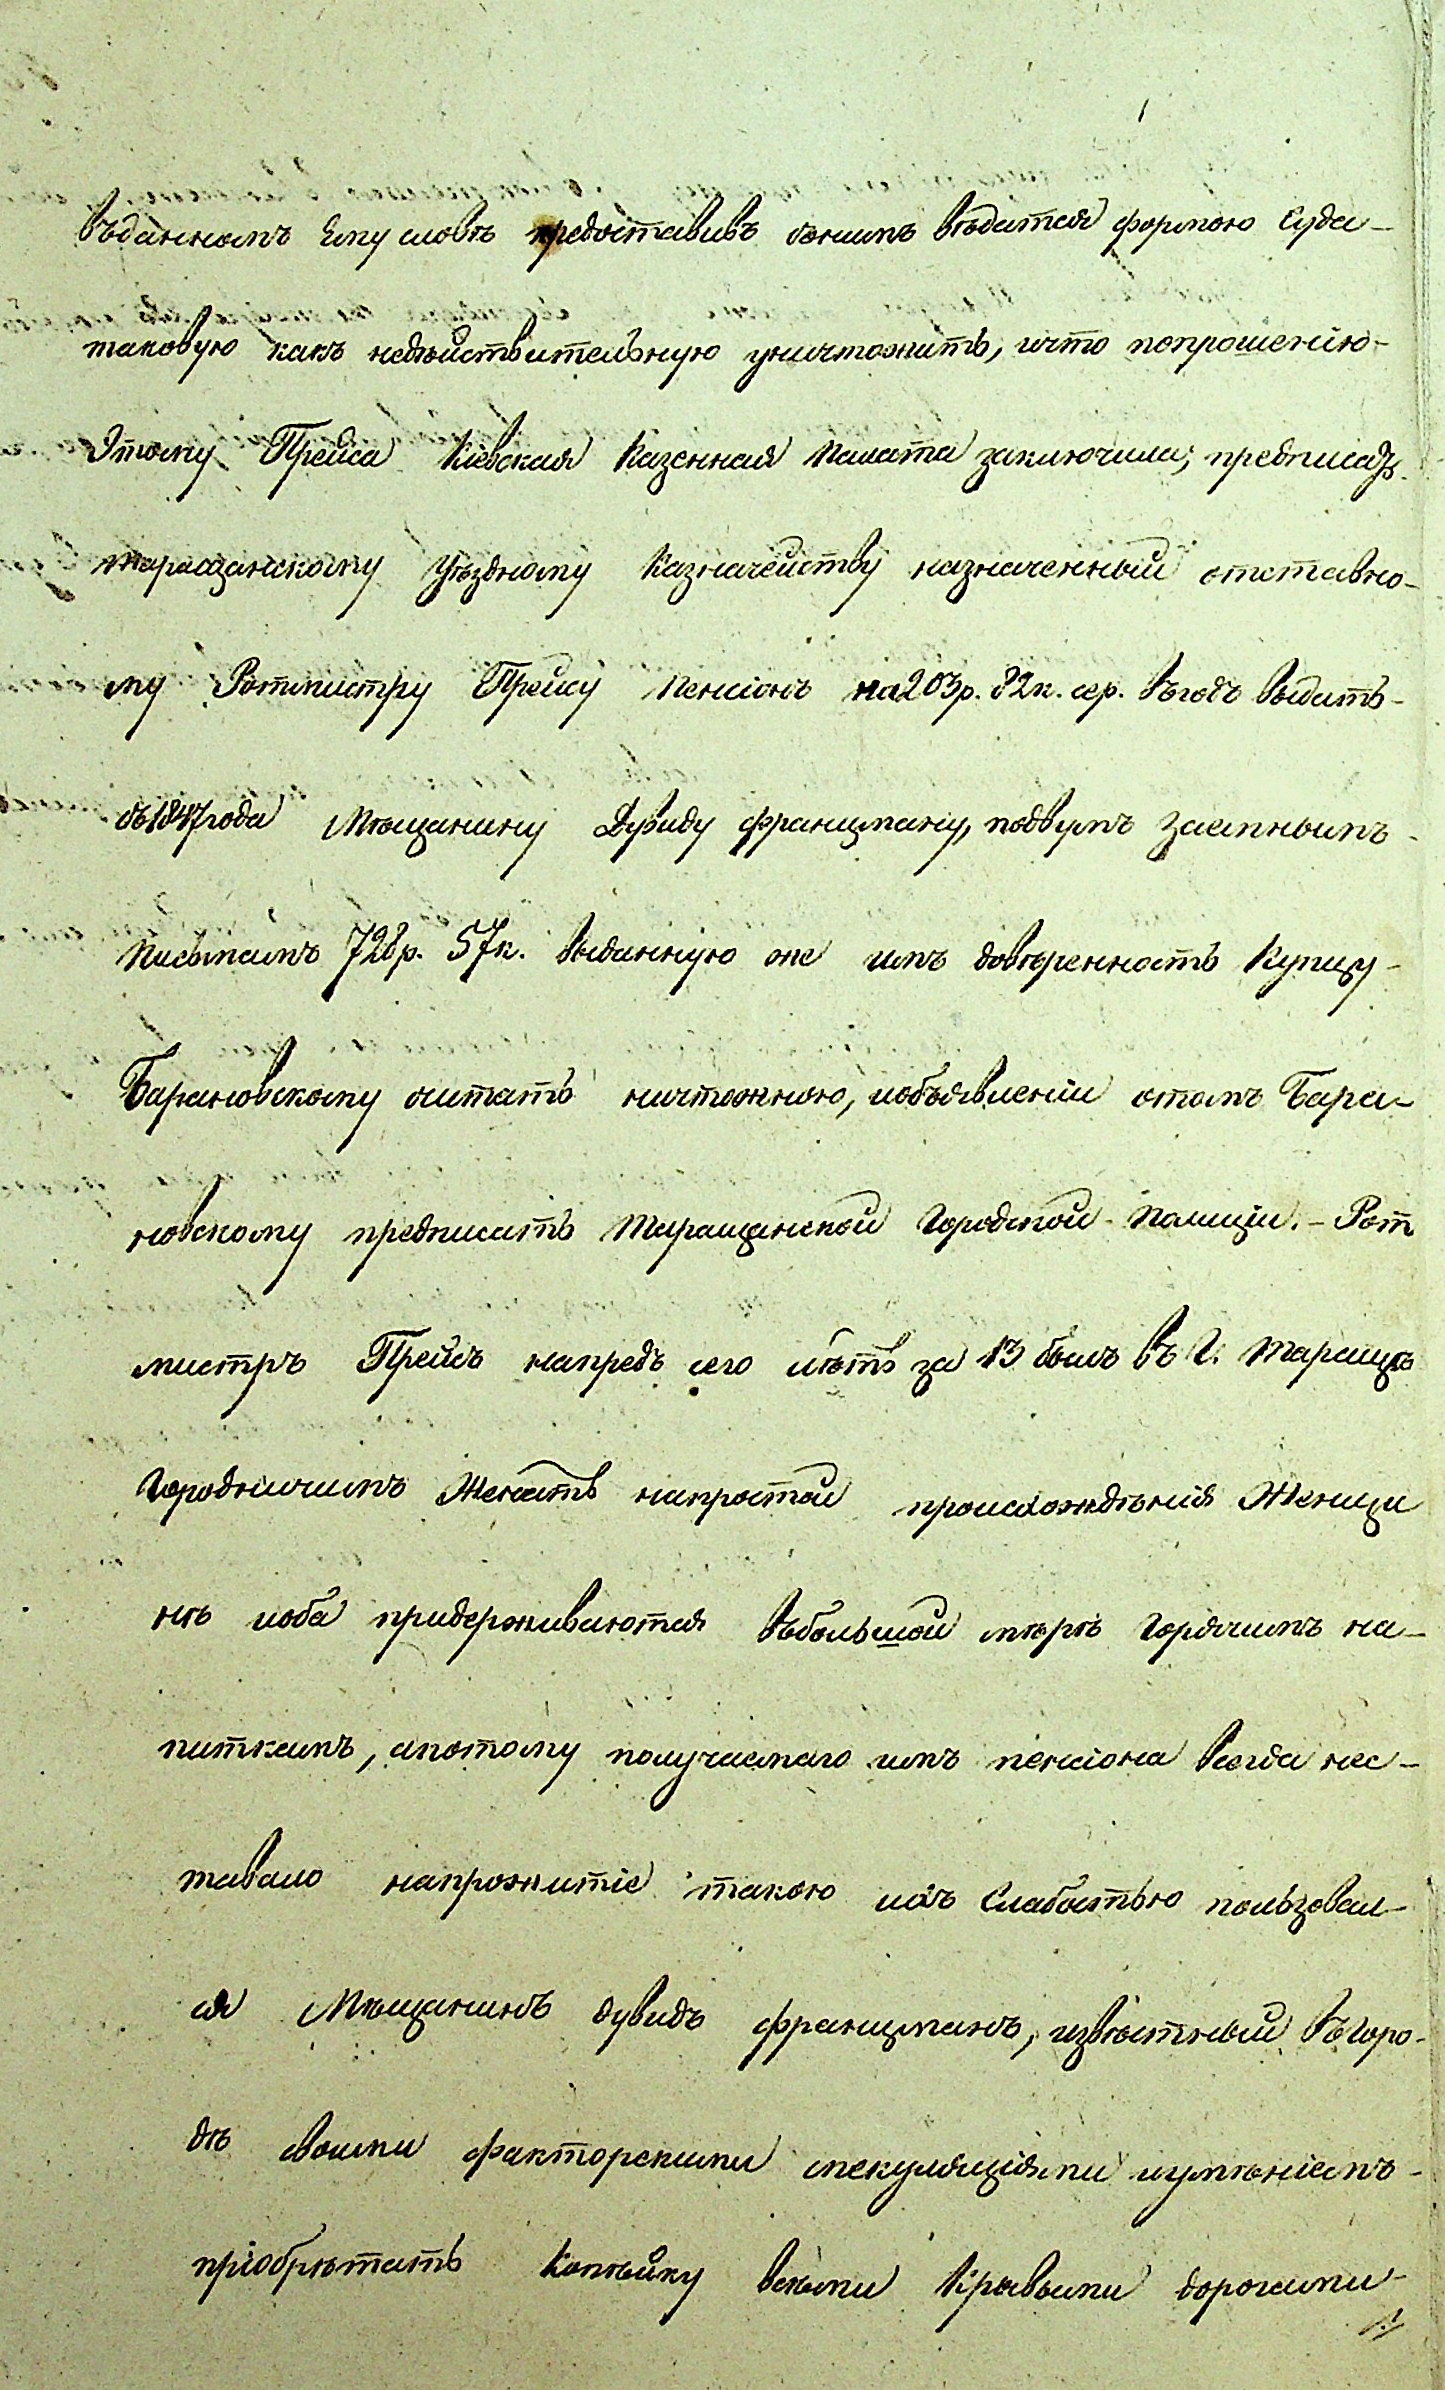 въданномъ Ему словѣ предоставивъ сънимъ вѣдатся формою Суда-
таковую какъ недѣйствительную уничтожить, ичто попрошенію-
Этому Прейса Кіевская Казенная Палата заключила; предписать
таращанскому Уѣздному Казначейству назначенный отставно-
му Ротмистру Прейсу пенсіонъ на 203р. 82к. сер. въгодъ выдать-
съ1847года Мѣщанину Дувиду францману, подвумъ заемнымъ-
письмамъ 728р. 57к. выданную же имъ довѣренность Купцу-
Барановскому считать ничтожною, иобъявленіи отомъ Бара-
новскому предписать Таращанской Городской Полиціи. - Рот
мистръ Прейсъ напредъ сего лѣтъ за 13 былъ въ Г. Таращѣ
Городничимъ Женатъ напростой происхожденія Женщи
нѣ иоба придерживаются въбольшой мѣрѣ горячимъ на-
питкамъ, апотому получаемаго имъ пенсіона всегда нес-
тавало напрожитіе такою ихъ Слабостью пользовал-
ся Мѣщанинъ дувидъ францманъ, извѣстный въгоро-
дѣ своими факторскими спекуляціями иумѣніемъ-
пріобрѣтать Копѣйку всѣми Кривыми дорогами-